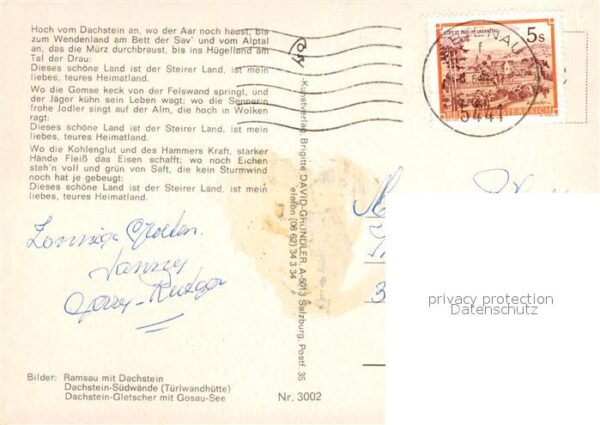 Hoch vom Dachstein an, wo der Aar noch haust, bis
zum Wendenland am Bett der Sav' und vom Alptal
an, das die Mürz durchbraust, bis ins Hügelland am
Tal der Drau:
Dieses schöne Land ist der Steirer Land, ist mein
liebes, teures Heimatland.
Wo die Gemse keck von der Felswand springt, und
der Jäger kühn sein Leben wagt; wo die Sennerin
frohe Jodler singt auf der Alm, die hoch in Wolken
ragt:
Dieses schöne Land ist der Steirer Land, ist mein
liebes, teures Heimatland.
Wo die Kohlenglut und des Hammers Kraft, starker
Hände Fleiß das Eisen schafft; wo noch Eichen
steh'n voll und grün von Saft, die kein Sturmwind
noch hat je gebeugt:
Dieses schöne Land ist der Steirer Land, ist mein
liebes, teures Heimatland.
Bilder: Ramsau mit Dachstein
Dachstein-Südwände (Türlwandhütte)
Dachstein-Gletscher mit Gosau-See
Nr. 3002
Kunstverlag Brigitte DAVID-GRÜNDLER, A-5013 Salzburg, Postf. 35
Telefon (06 62) 34 3 34
5s
5441
privacy protection
Datenschutz